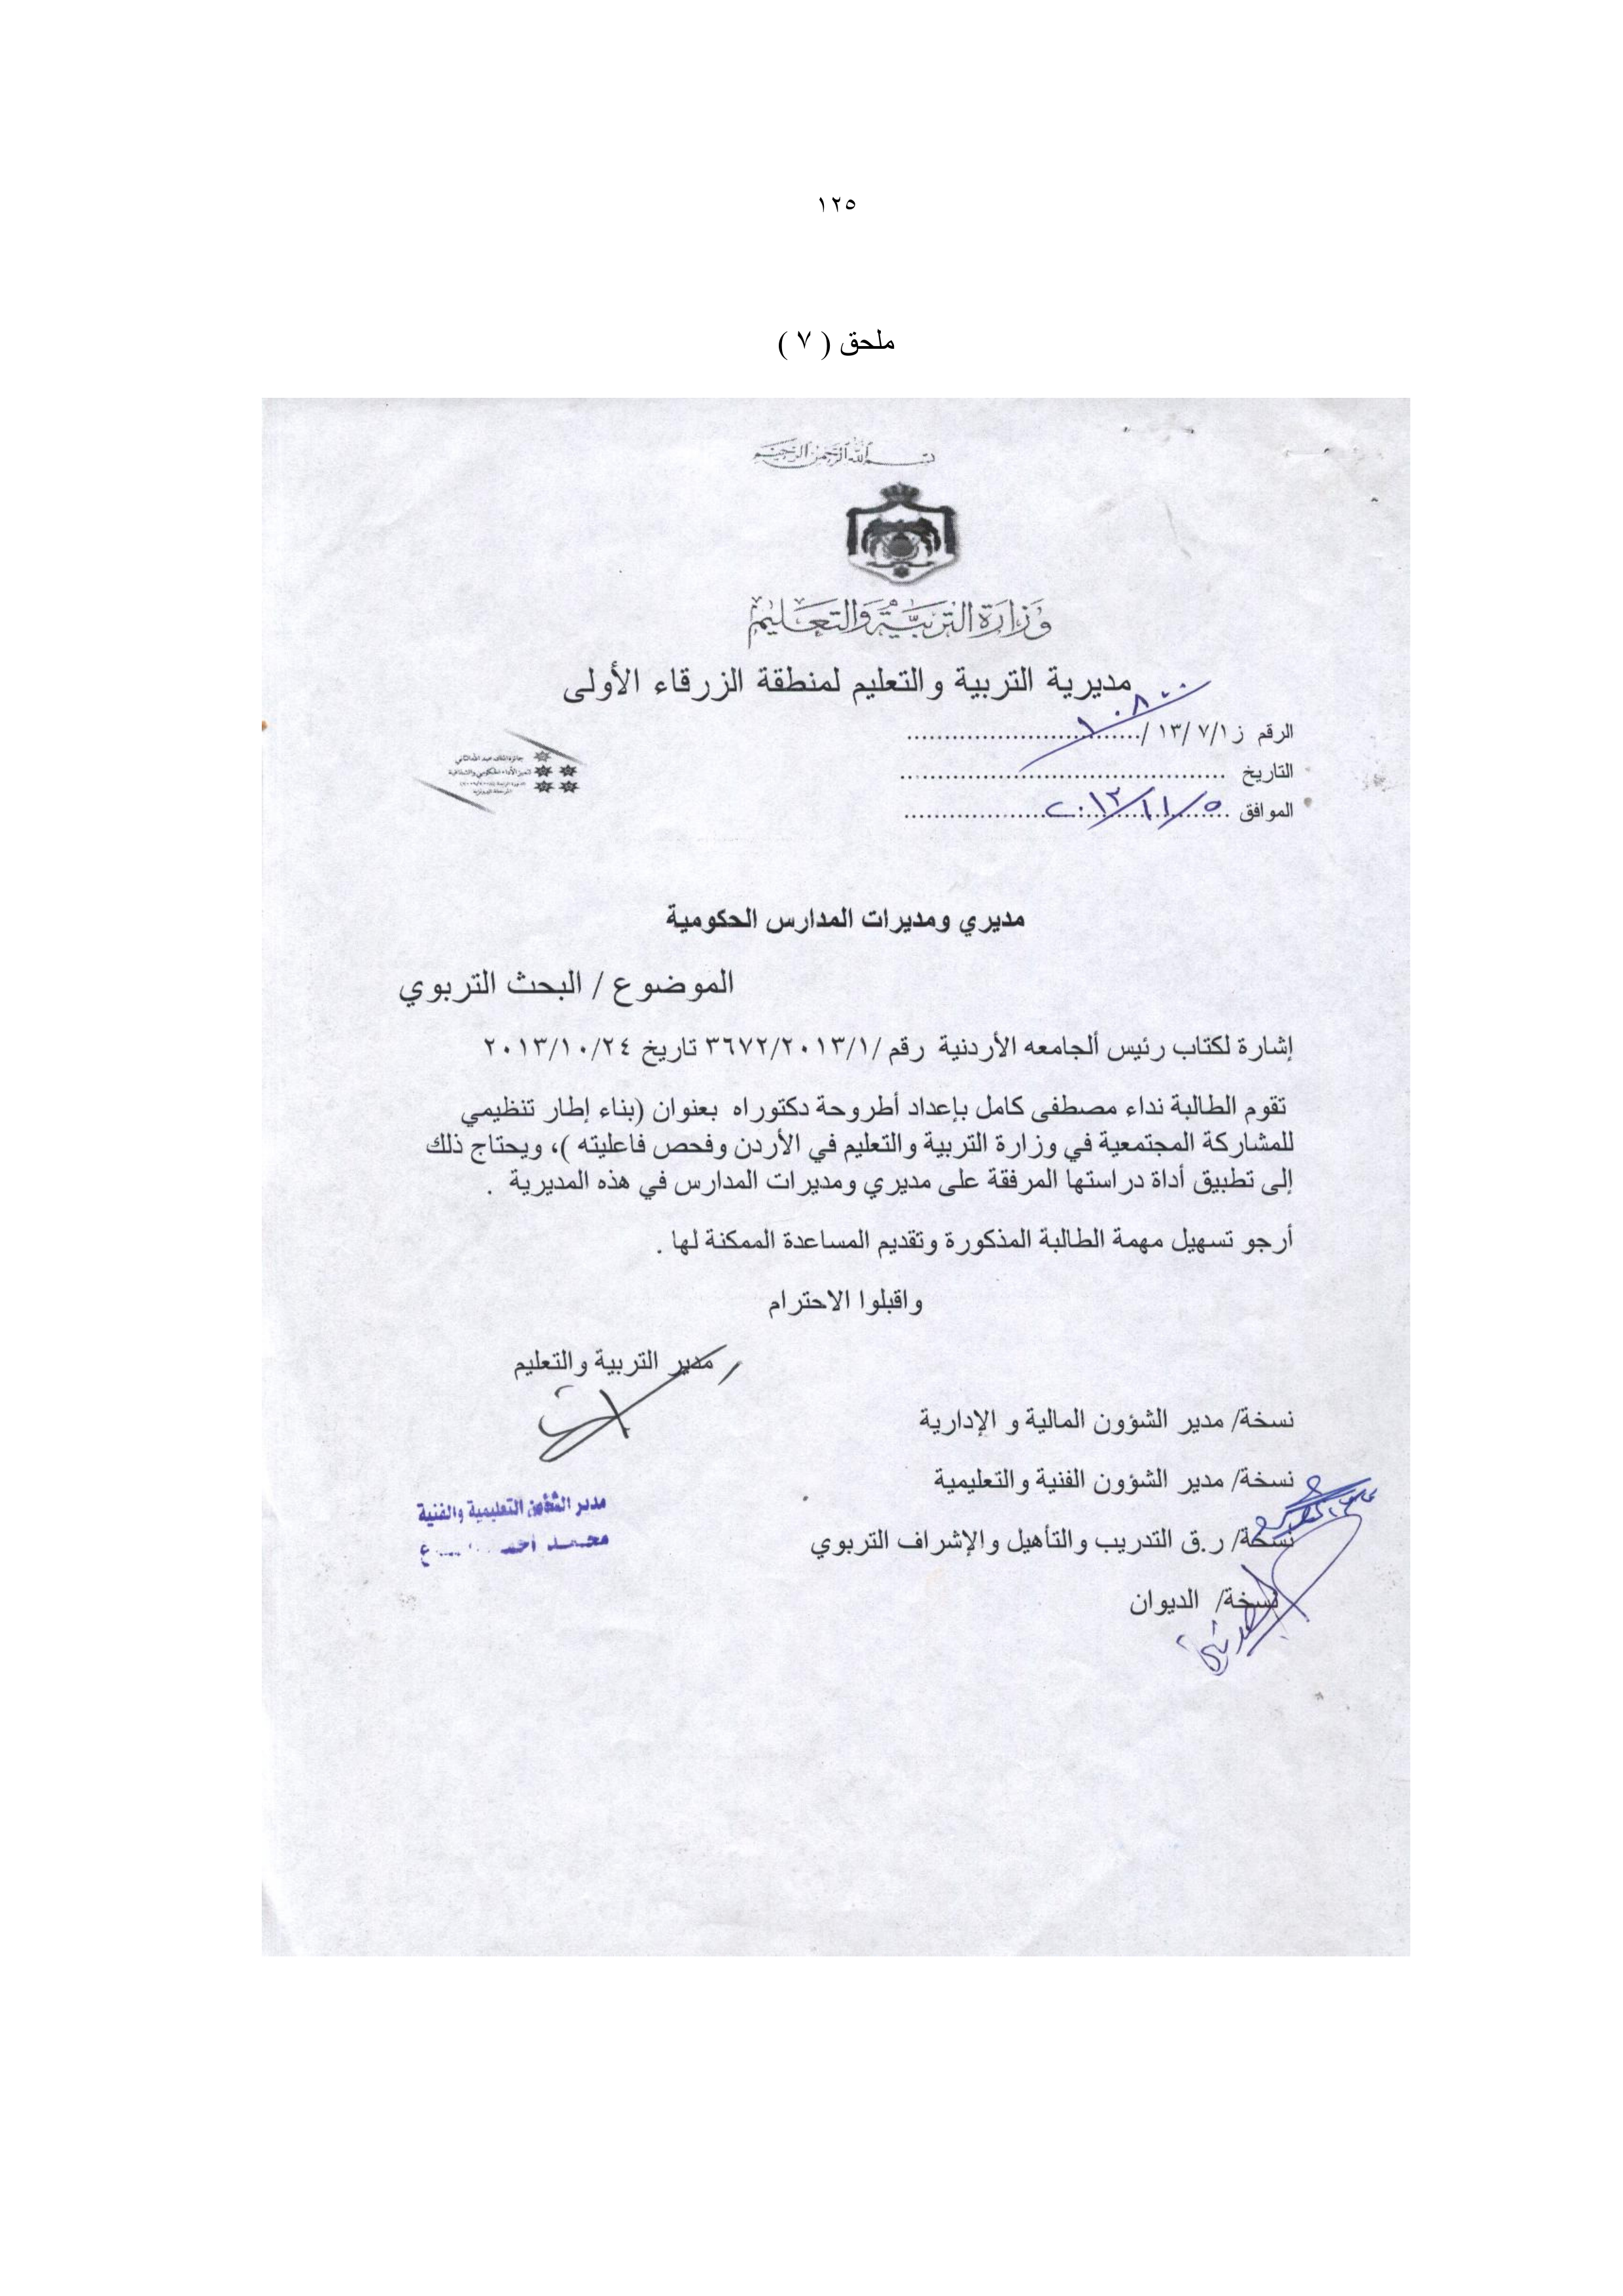 ١٢٥
ملحق ( ٧ )
بسم الله الرحمن الرحيم
وزارة التربية والتعليم
مديرية التربية والتعليم لمنطقة الزرقاء الأولى
الرقم ز ١٣/ ٧/١ / ١٠٨٠٠
التاريخ
الموافق ٥/ ١١/ ٢٠١٣
جائزة الملك عبد الله الثاني
لتميز الأداء الحكومي والشفافية
مديري ومديرات المدارس الحكومية
الموضوع / البحث التربوي
إشارة لكتاب رئيس ألجامعه الأردنية رقم /٣٦٧٢/٢٠١٣/١ تاريخ ٢٠١٣/١٠/٢٤
تقوم الطالبة نداء مصطفى كامل بإعداد أطروحة دكتوراه بعنوان (بناء إطار تنظيمي
للمشاركة المجتمعية في وزارة التربية والتعليم في الأردن وفحص فاعليته )، ويحتاج ذلك
إلى تطبيق أداة دراستها المرفقة على مديري ومديرات المدارس في هذه المديرية .
أرجو تسهيل مهمة الطالبة المذكورة وتقديم المساعدة الممكنة لها .
واقبلوا الاحترام
مدير التربية والتعليم
نسخة/ مدير الشؤون المالية و الإدارية
نسخة/ مدير الشؤون الفنية والتعليمية
نسخة/ ر.ق التدريب والتأهيل والإشراف التربوي
نسخة/ الديوان
مدير الشؤون التعليمية والفنية
محمد احمد